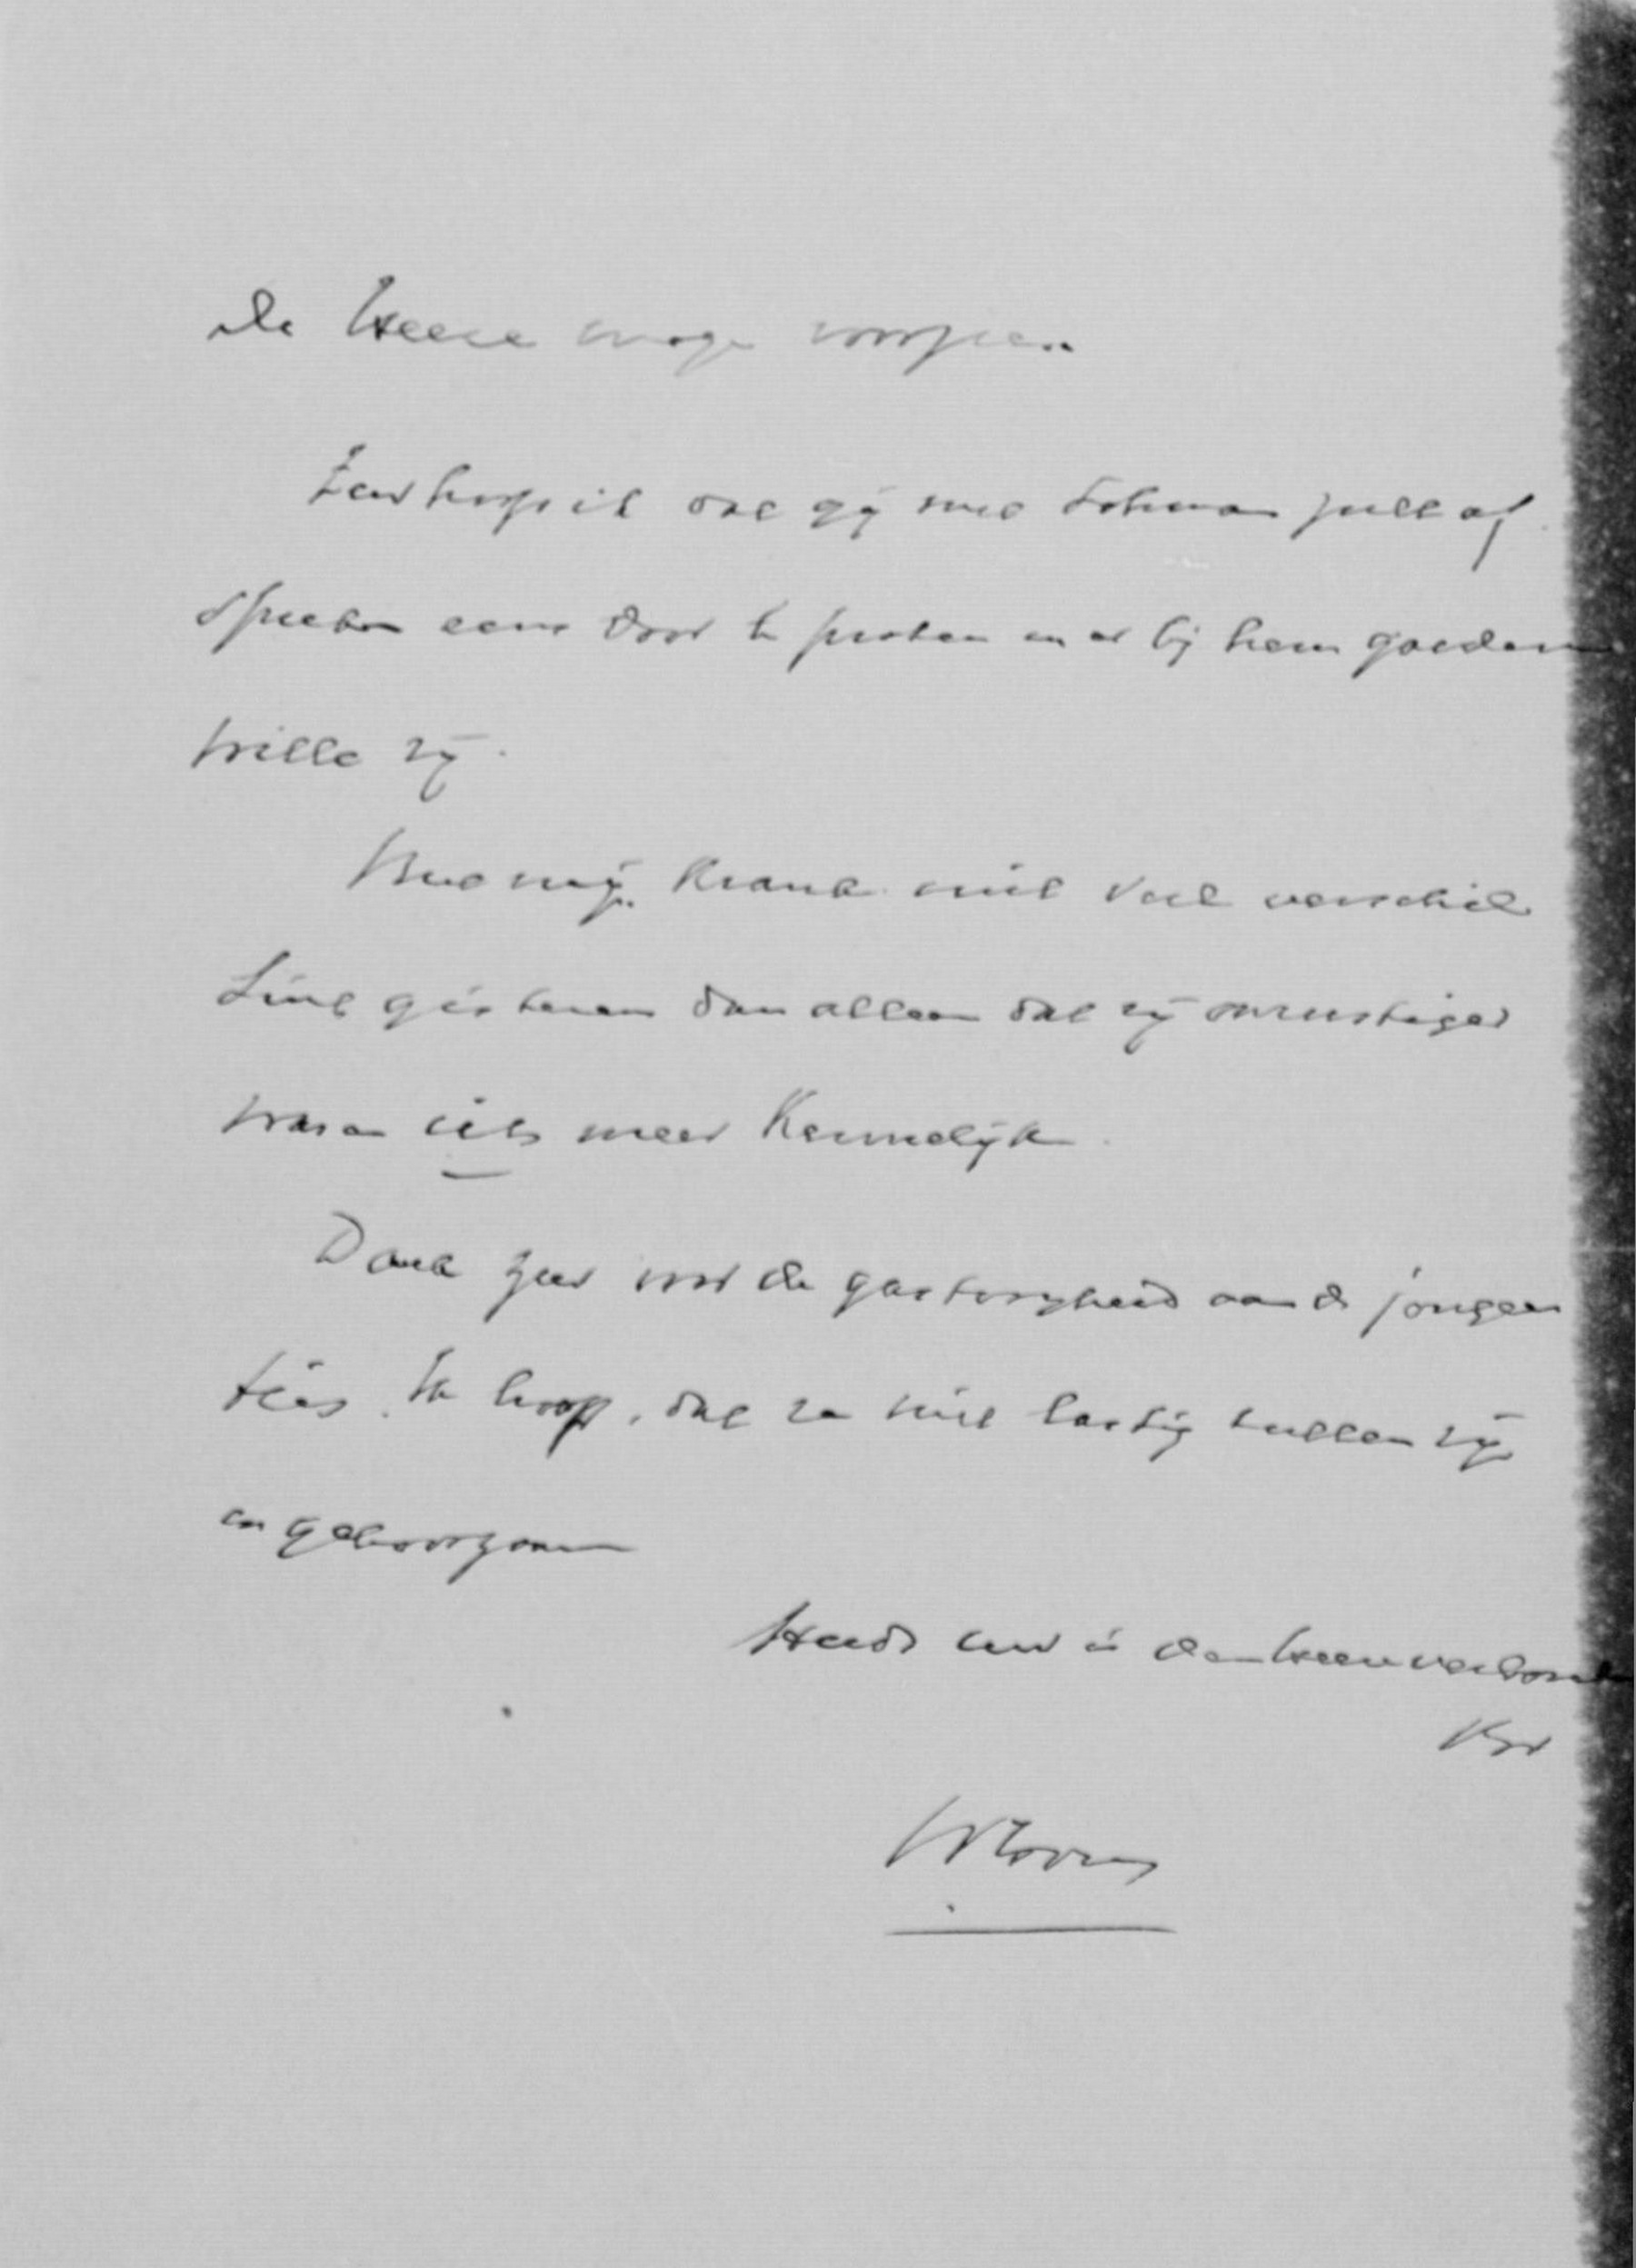 De Heere moge voorzien.
Zeer hoop ik dat gij met Lohman zult af
spreken eens door te praten en er bij hem goeden
wille zij.
Met mijn Kranke niet veel verschil
sints gisteren dan alleen dat zij onrustiger
was en iets meer Kennelijk.
Dank zeer voor de gastvrijheid aan de jongen
tjes. Ik hoop, dat ze niet lastig zullen zijn
en gehoorzaam
Steeds uw in den Heere verbonden